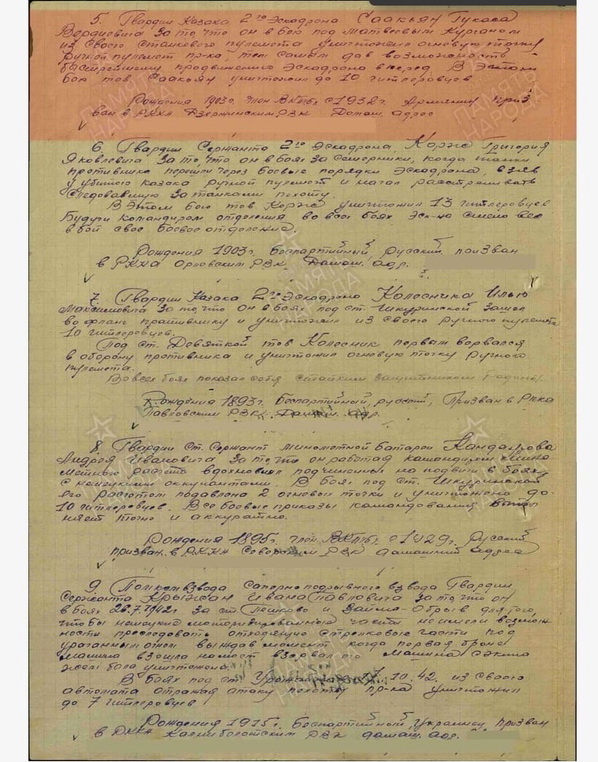 5. Гвардии Казака 2го Эскадрона Саакьян Гукаса
Вердиевича За то что он в бою под Матвеевым Курганом
из своего станкового пулемета уничтожил огневую точку
ручной пулемет пр-ка, тем самым дав возможность
быстрейшему продвижению Эскадрона вперед В этом
бою тов Саакьян уничтожил до 10 гитлеровцев
Рождения 1903г. член ВКП(б) с 1932г. Армянин приз
ван в РККА Дзержинским РВК Домаш. адрес
6. Гвардии Сержанта 2го Эскадрона, Корж Григория
Яковлевича За то что он в боях за Семерники, когда танки
противника перешли через боевые порядки Эскадрона, взяв
у убитого казака ручной пулемет и начал расстреливать
следовавшую за танками пехоту.
В этом бою тов Корж уничтожил 13 гитлеровцев
Будучи командиром отделения во всех боях смело вел
в бой свое боевое отделение.
Рождения 1903г. Беспартийный, русский, призван
в РККА Орловским РВК. Домаш. адр.
7. Гвардии Казака 2го Эскадрона Колесника Илью
Максимовича За то что он в бою под ст. Шкуринской зашел
во фланг противнику и уничтожил из своего ручного пулемета
10 гитлеровцев.
Под ст. Девяткой тов Колесник первым ворвался
в оборону противника и уничтожил огневую точку ручного
пулемета.
Во всех боях показал себя стойким защитником Родины.
Рождения 1893г. Беспартийный, русский, Призван в РККА
Павловским РВК. Домаш. адр.
8. Гвардии Ст. Сержант минометной батареи
Андрея Ивановича За то что он работая командиром
расчета вдохновлял подчиненных на подвиги в боях
с немецкими оккупантами. В боях под ст. Шкуринской
его расчетом подавлена 2 огневых точки и уничтожено до
10 гитлеровцев. Все боевые приказы командования выпол
няет точно и аккуратно.
Рождения 1895г. член ВКП(б) с 1929г. Русский
призван в РККА РВК домашний адрес
9. Помкомвзвода Саперно подрывного взвода Гвардии
Сержанта Ивана Павловича За то что он
в боях 28.7.1942г. за ст Пешково и для того,
чтобы немецкие моторизированные части не имели возмож-
ности преследовать отходящие стрелковые части под
ураганным огнем выждав момент когда первая броне
машина взошла на мост взорвал его машина
была уничтожена.
В боях под ст. 7.10.42. из своего
автомата отражая атаку пехоты пр-ка уничтожил
до 7 гитлеровцев
Рождения 1915г. Беспартийный, Украинец, призван
в РККА РВК домаш. адр.
ПАМЯТЬ НАРОДА